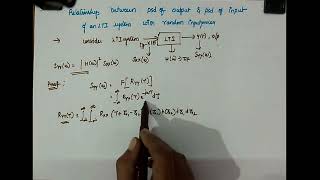 Relationship between psd of output & psd of input
of an LTI system with random inputs
→ consider LTI system X(t) LTI Y(t), o/p
Sxx(ω) H(ω) Syy(ω)
Syy(ω) = |H(ω)|² Sxx(ω)
Proof: Syy(ω) = F[Ryy(τ)]
= ∫ Ryy(τ) e dτ
Ryy(τ) = ∫ ∫ Rxx(τ+